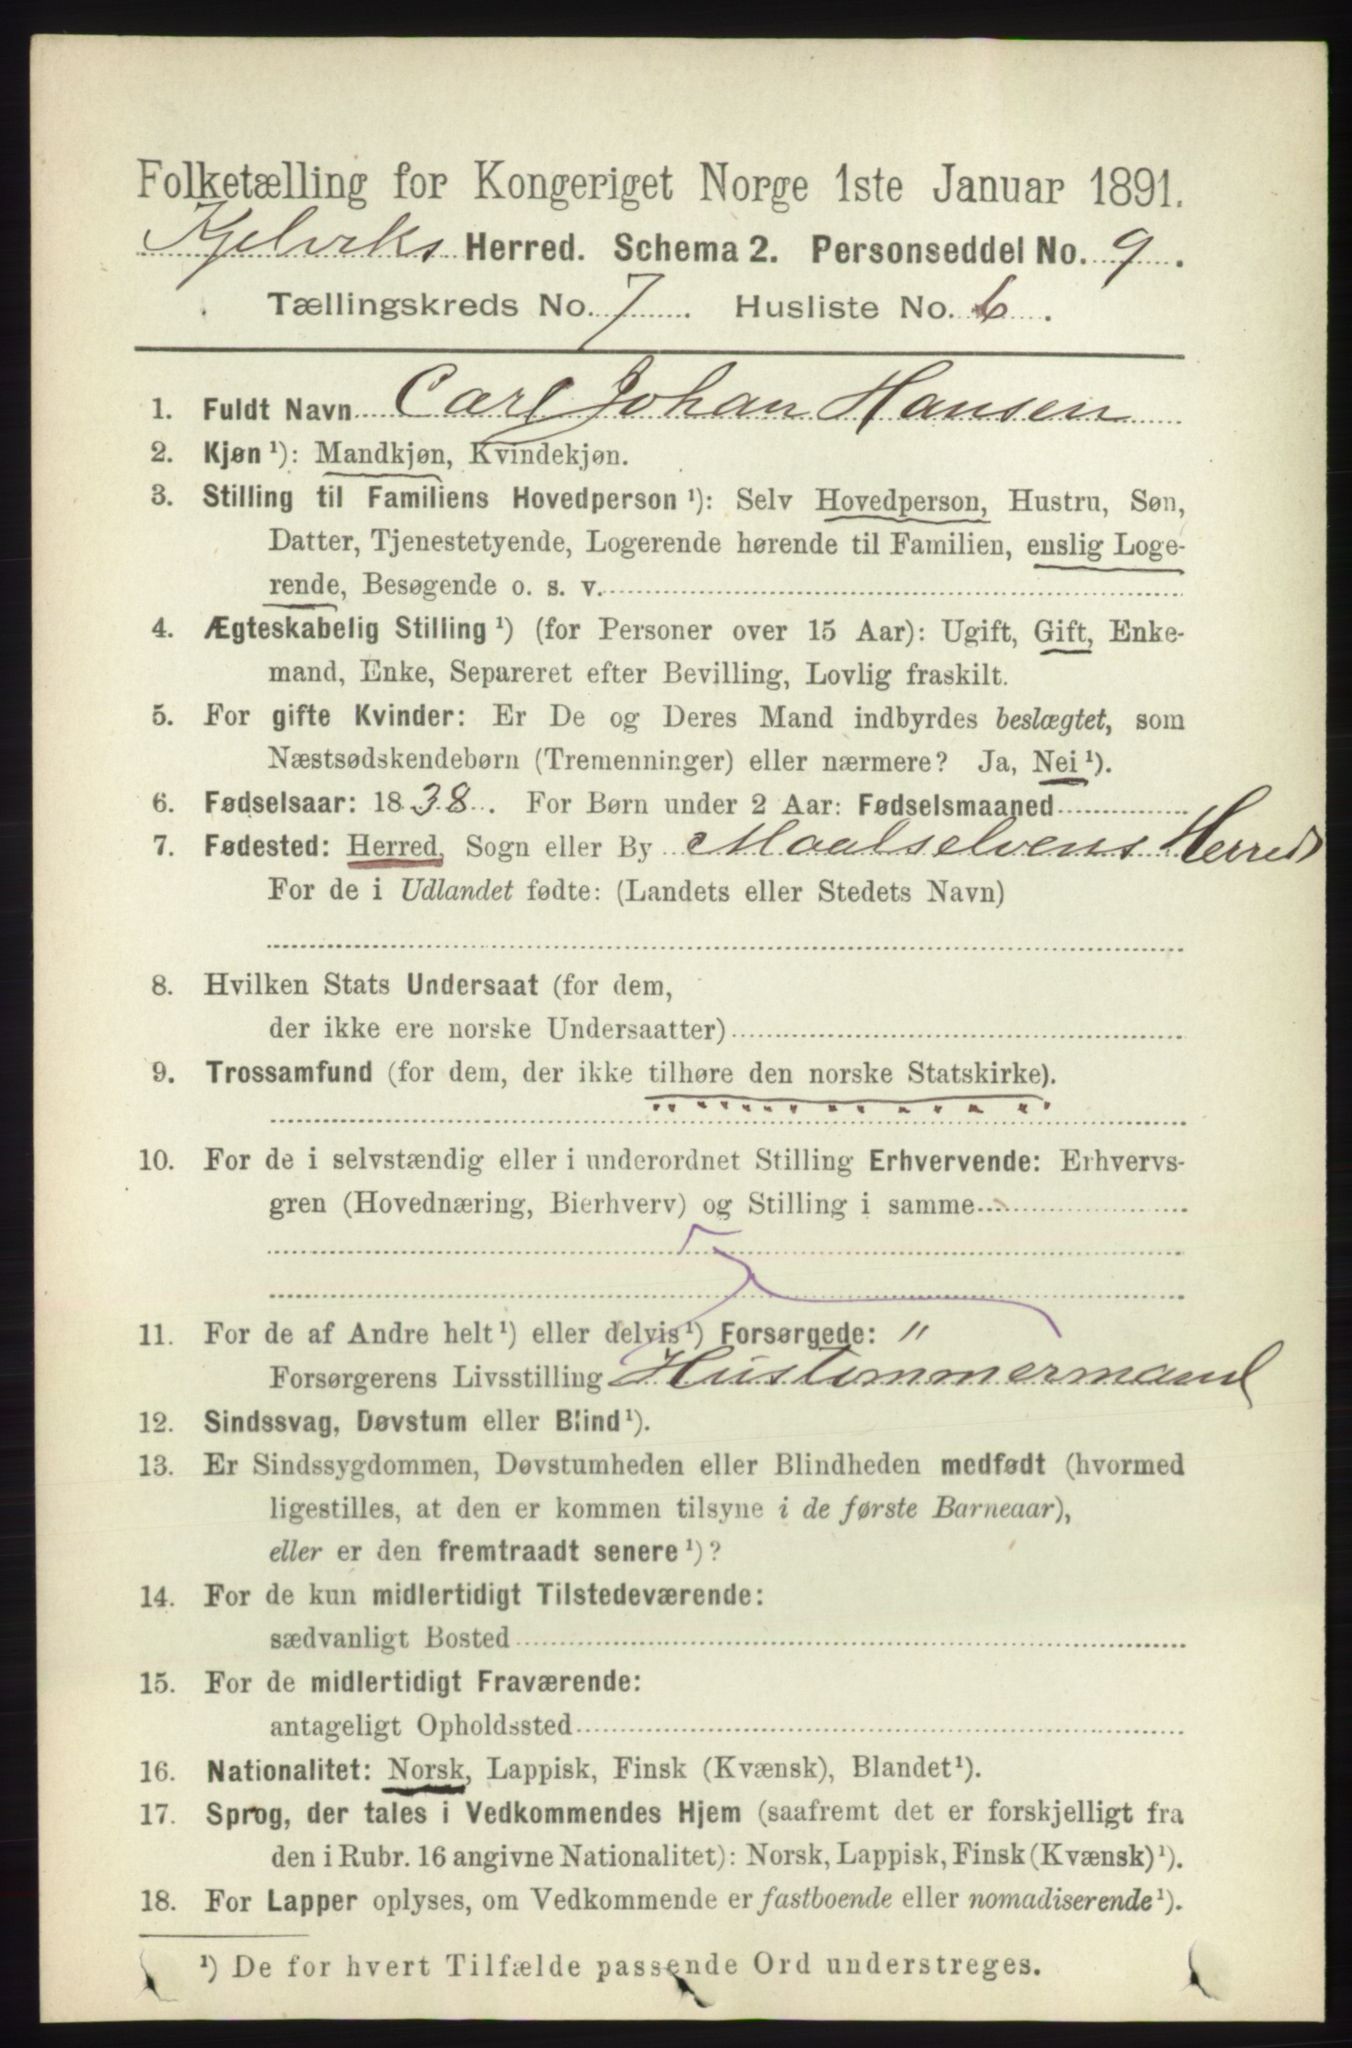 Folketælling for Kongeriget Norge 1ste Januar 1891.
Kjelviks Herred. Schema 2. Personseddel No. 9.
Tællingskreds No. 7. Husliste No. 6.
1. Fuldt Navn Carl Johan Hansen
2. Kjøn ¹): Mandkjøn, Kvindekjøn.
3. Stilling til Familiens Hovedperson ¹): Selv Hovedperson, Hustru, Søn,
Datter, Tjenestetyende, Logerende hørende til Familien, enslig Loge-
rende, Besøgende o. s. v.
4. Ægteskabelig Stilling ¹) (for Personer over 15 Aar): Ugift, Gift, Enke-
mand, Enke, Separeret efter Bevilling, Lovlig fraskilt.
5. For gifte Kvinder: Er De og Deres Mand indbyrdes beslægtet, som
Næstsødskendebørn (Tremenninger) eller nærmere? Ja, Nei ¹).
6. Fødselsaar: 1838. For Børn under 2 Aar: Fødselsmaaned
7. Fødested: Herred, Sogn eller By Maalselvens Herred
For de i Udlandet fødte: (Landets eller Stedets Navn)
8. Hvilken Stats Undersaat (for dem,
der ikke ere norske Undersaatter)
9. Trossamfund (for dem, der ikke tilhøre den norske Statskirke).
10. For de i selvstændig eller i underordnet Stilling Erhvervende: Erhvervs-
gren (Hovednæring, Bierhverv) og Stilling i samme
11. For de af Andre helt ¹) eller delvis ¹) Forsørgede: "
Forsørgerens Livsstilling Hustømmermand
12. Sindssvag, Døvstum eller Blind ¹).
13. Er Sindssygdommen, Døvstumheden eller Blindheden medfødt (hvormed
ligestilles, at den er kommen tilsyne i de første Barneaar),
eller er den fremtraadt senere ¹)?
14. For de kun midlertidigt Tilstedeværende:
sædvanligt Bosted
15. For de midlertidigt Fraværende:
antageligt Opholdssted
16. Nationalitet: Norsk, Lappisk, Finsk (Kvænsk), Blandet ¹).
17. Sprog, der tales i Vedkommendes Hjem (saafremt det er forskjelligt fra
den i Rubr. 16 angivne Nationalitet): Norsk, Lappisk, Finsk (Kvænsk) ¹).
18. For Lapper oplyses, om Vedkommende er fastboende eller nomadiserende ¹).
¹) De for hvert Tilfælde passende Ord understreges.